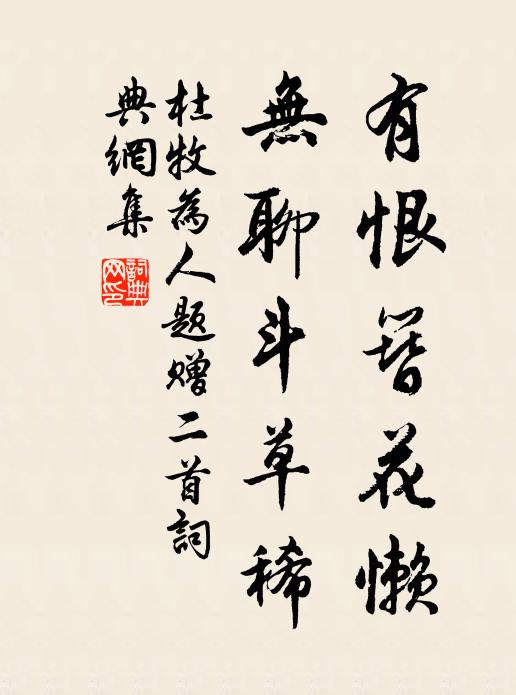 有恨簪花懶
無聊斗草稀
杜牧為人題贈二首詞
典網集
詞典
网印